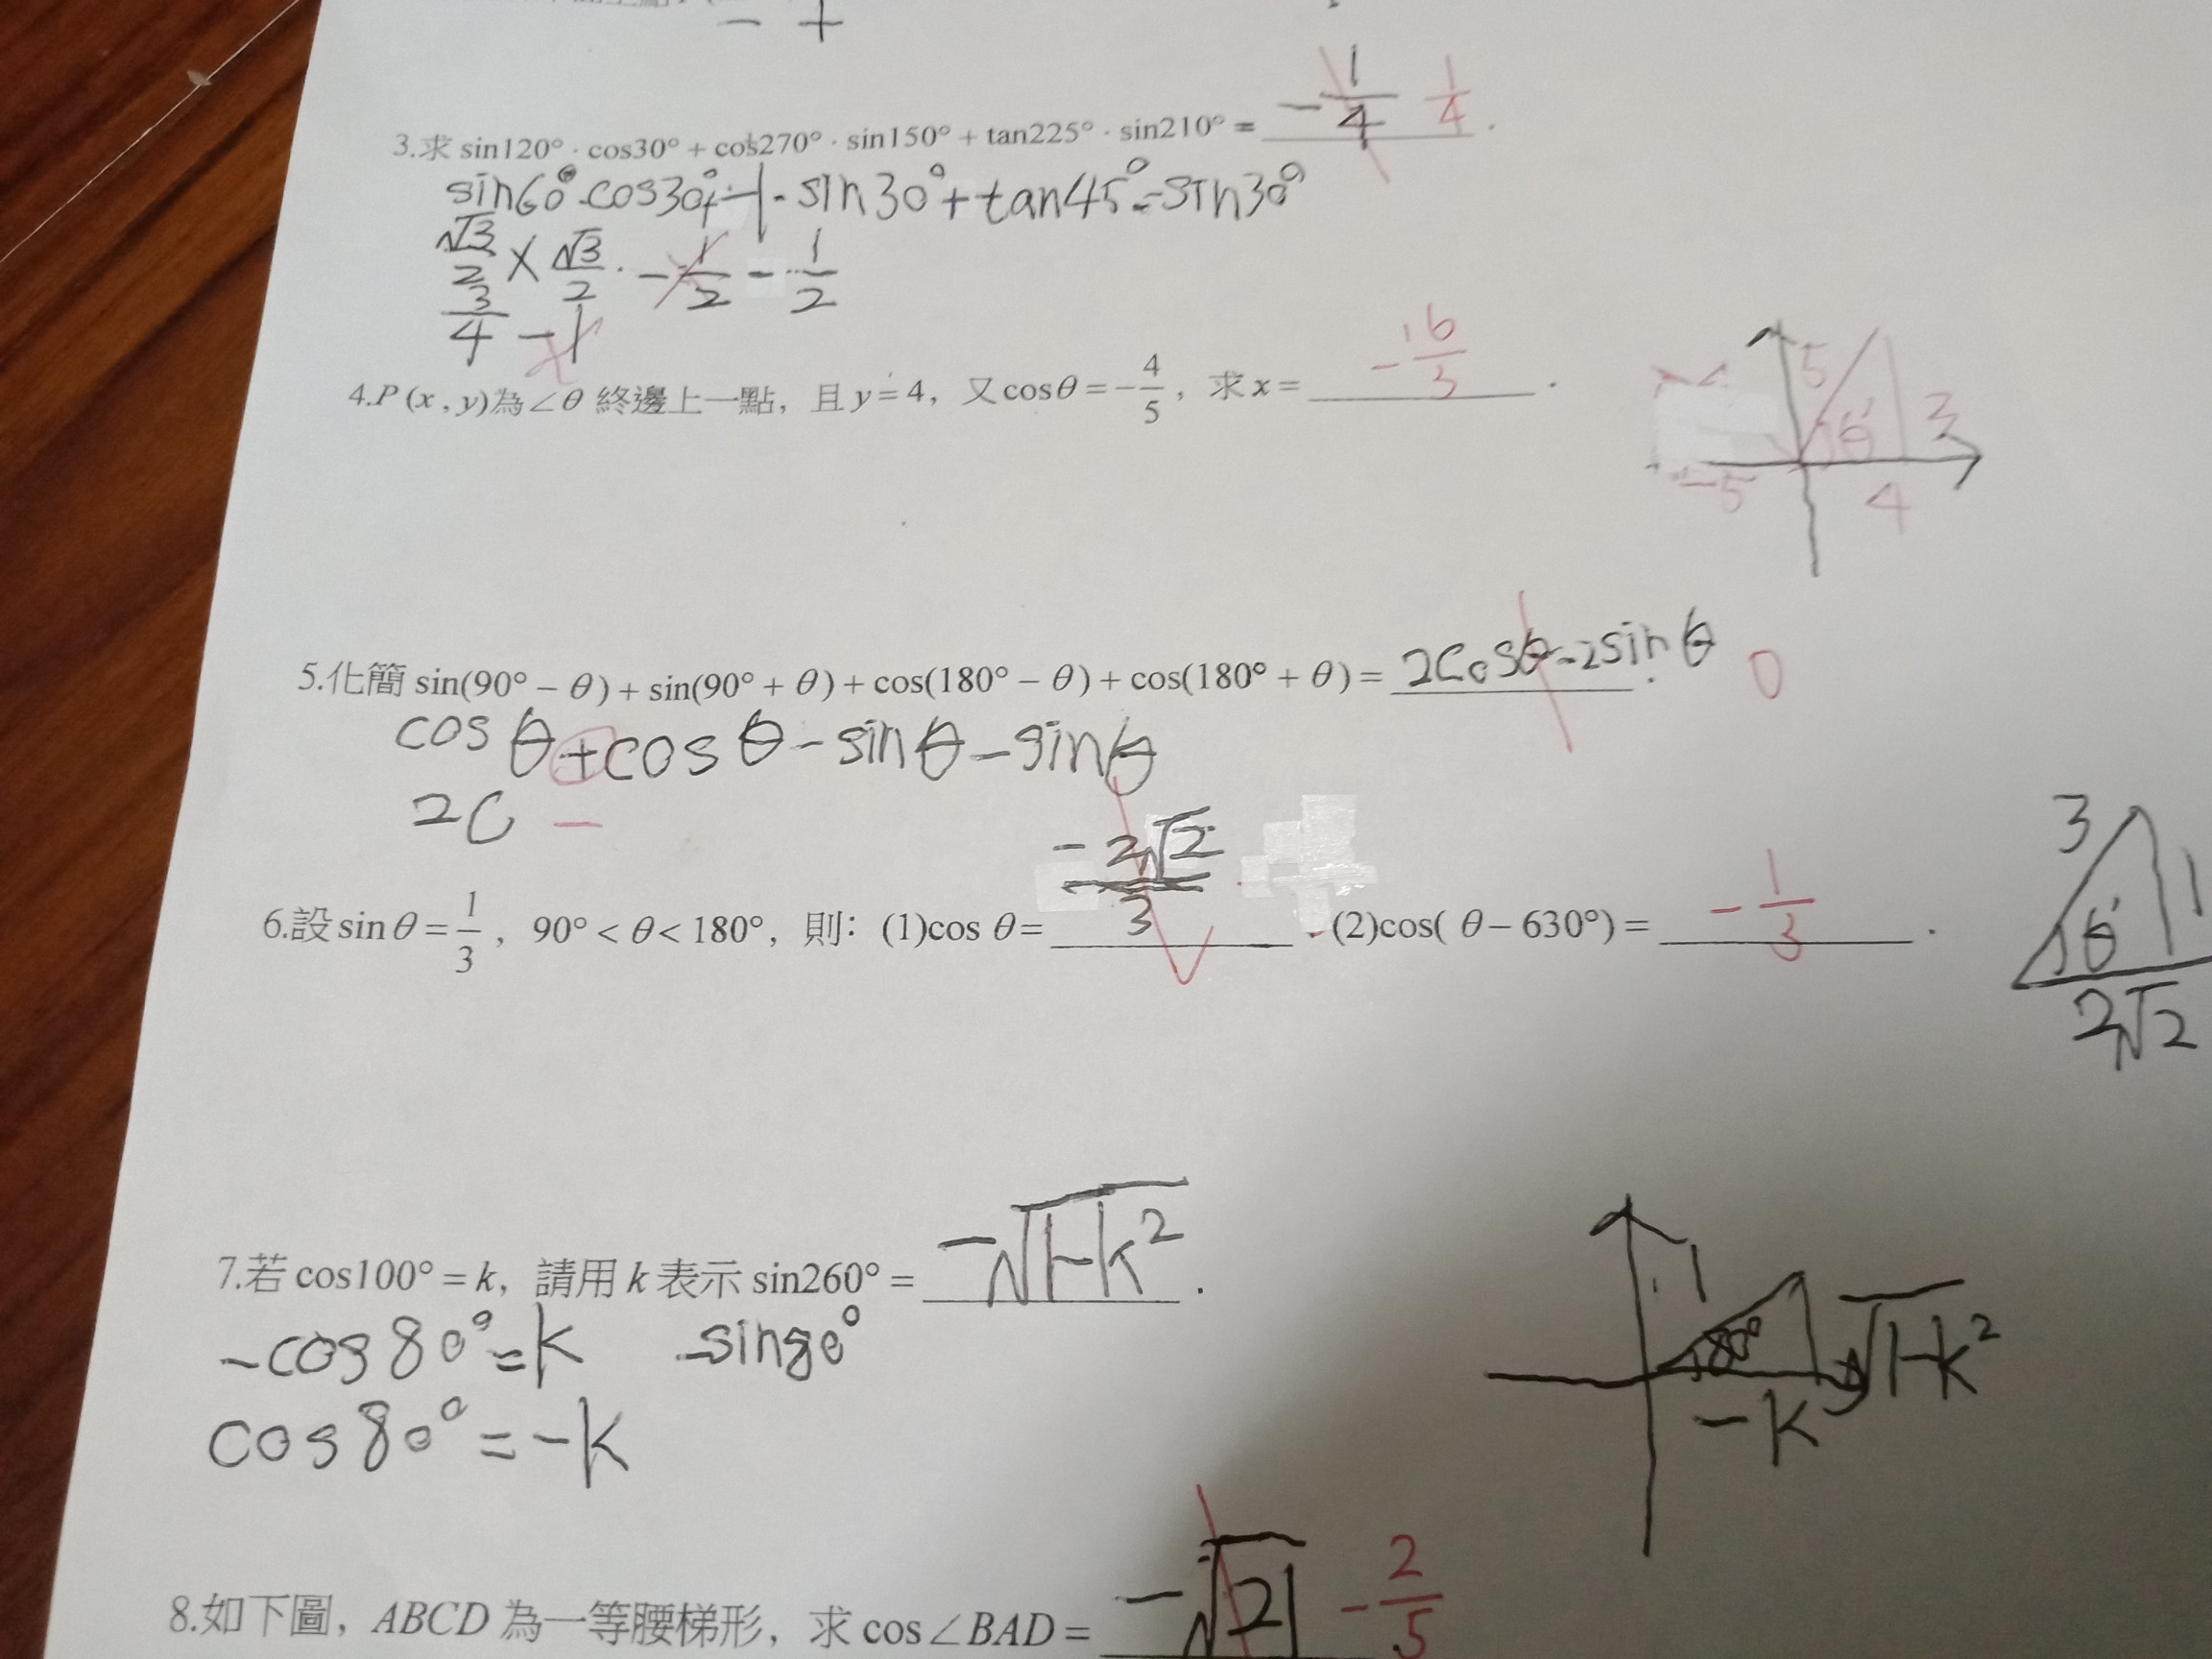 − +
3.求 sin120° · cos30° + cos270° · sin150° + tan225° · sin210° = −1/4 1/4 .
sin60° · cos30° + −1 · sin30° + tan45° − sin30°
√3/2 × √3/2 · − 1/2 − 1/2
3/4 − 1
4.P (x , y)為∠θ 終邊上一點，且 y = 4，又 cosθ = −4/5，求 x = −16/3 .
5 θ' 3
−5 4
5.化簡 sin(90° − θ) + sin(90° + θ) + cos(180° − θ) + cos(180° + θ) = 2cosθ−2sinθ . 0
cosθ+cosθ−sinθ−sinθ
2C −
6.設 sinθ = 1/3，90° < θ < 180°，則：(1)cos θ = −2√2/3 . (2)cos( θ − 630°) = −1/3 .
3 1
θ'
2√2
7.若 cos100° = k，請用 k 表示 sin260° = −√1−k² .
−cos80°=k −sin80°
cos80°=−k
1 80° √1−k²
−k
8.如下圖，ABCD 為一等腰梯形，求 cos∠BAD = −√21 −2/5